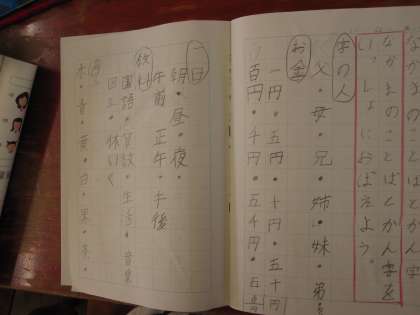 なかまのことばとかん字
なかまのことばとかん字を
いっしょにおぼえよう。
家の人
父・母・兄・姉・妹・弟
お金
一円・五円・十円・五十円
百円・千円・五千円・一万円
一日
朝・昼・夜・
午前 正午・午後
教科
国語・算数・生活・音楽
図工・体いく
色
水・青・黄・白・黒・茶・